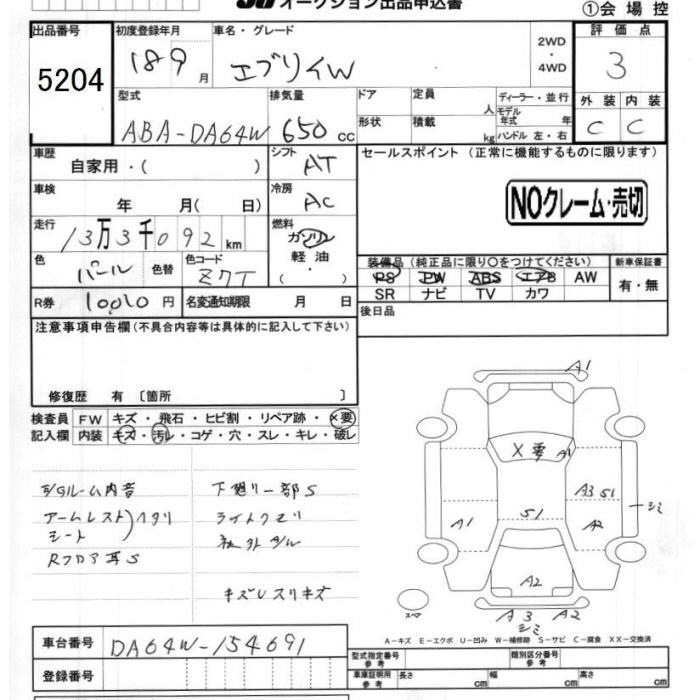 オークション出品申込書
①会場控
出品番号
5204
初度登録年月
18 9 月
車名・グレード
エブリイW
2WD
・
4WD
評価点
3
型式
ABA-DA64W
排気量
650 cc
ドア
定員
人
形状
積載
kg
ディーラー・並行
モデル年式 年
ハンドル 左・右
外装
内装
C
C
車歴
自家用・( )
シフト
AT
セールスポイント (正常に機能するものに限ります)
NOクレーム・売切
車検
年 月( 日)
冷房
AC
走行
13万3千092 km
燃料
ガソリン
軽油
・
( )
色
パール
色替
色コード
Z7T
装備品(純正品に限り○をつけてください)
PS PW ABS エアB AW
SR ナビ TV カワ
新車保証書
有・無
R券
10010 円
名変通知期限 月 日
後日品
注意事項申告欄(不具合内容等は具体的に記入して下さい)
修復歴 有〔箇所 〕
検査員
記入欄
FW キズ・飛石・ヒビ割・リペア跡・×要
内装 キズ・汚レ・コゲ・穴・スレ・キレ・破レ
アームレスト
シート
ヘタリ
Rフロア耳S
下廻り一部S
ライトクモリ
キズレスリキズ
A1
X要
A1
A3 S1
シミ
A1
S1
A2
A2
A3 A2
シミ
スペア
A-キズ E-エクボ U-凹み W-補修跡 S-サビ C-腐食 XX-交換済
車台番号
DA64W-154691
登録番号
型式指定番号
参考
類別区分番号
参考
車庫証明用
参考
長さ cm
幅 cm
高さ cm